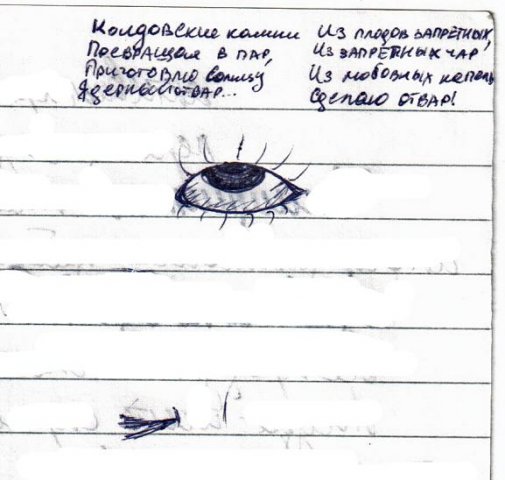 Колдовские камни
Превращая в пар,
Приготовлю
Ядерный отвар...
Из плодов запретных,
Из запретных чар,
Из любовных капель
Сделаю отвар!